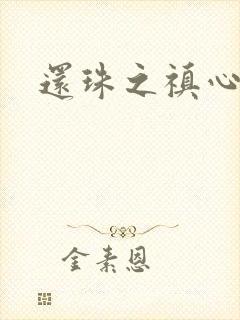 還珠之禛心
金素恩